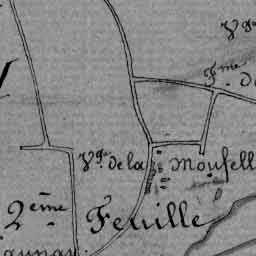 Vge
Fme de
Vge de la Mousell
2ème Feuille